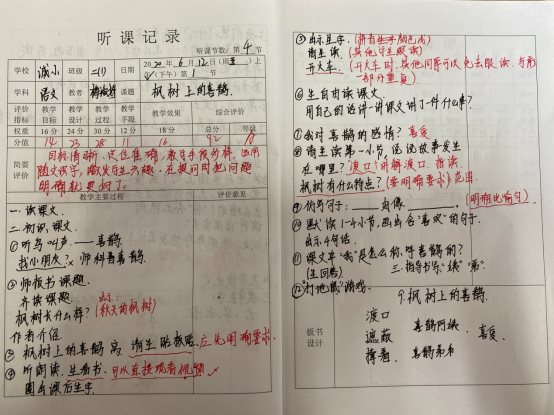 听课记录
听课节数：第4节
学校 城小 班级 二(1) 日期 2020年6月12日(周五)上
午(下午)第1节
学科 语文 教者 课题 枫树上的喜鹊
评价指标 教学目标 教学设计 教学过程 教学手段 教学效果 综合评价
权重 16分 24分 30分 12分 18分 总分 等级
分值 14 23 28 11 16 92 A
简要评价
目标清晰，定位准确，教学手段多样，运用
随文识字，激发学生兴趣，在提问时把问题
明确就更好了。
教学主要过程 评价意见
一. 读课文。
二. 初识课文。
①听鸟叫声。——喜鹊。
找小朋友？× 师科普喜鹊
③师板书课题。
齐读课题 出示
枫树长什么样？(秋天的枫树)
作者介绍
③枫树上的喜鹊窝，请生贴板贴。应先明确要求。
④听朗读，生看书，可以直接观看视频
圈画课后生字。
⑤出示生字，(所有生字颜色)
请生读(其他学生跟读)
开火车。(开火车时，其他同学可以免去跟读，与前一部分重复)
⑥生自由读课文。
用自己的话讲一讲课文讲了一件什么事？
⑦我对喜鹊的感情？喜爱
⑧请生读第一小节，说说故事发生
在哪里？渡口：讲解渡口，指读。
枫树有什么特点？(要明确要求)范围.
⑨仿写句子：______就像______。(明确比喻句)
⑩默读1-4小节，画出含“喜欢”的句子。
出示4句话.
⑪课文中“我”是怎么称呼喜鹊的？
(生回答) 三. 指导书写：“姨”“弟”。
⑫打地鼠游戏。
板书设计
9.枫树上的喜鹊.
渡口
遮蔽 喜鹊阿姨 喜爱
撑着 喜鹊弟弟